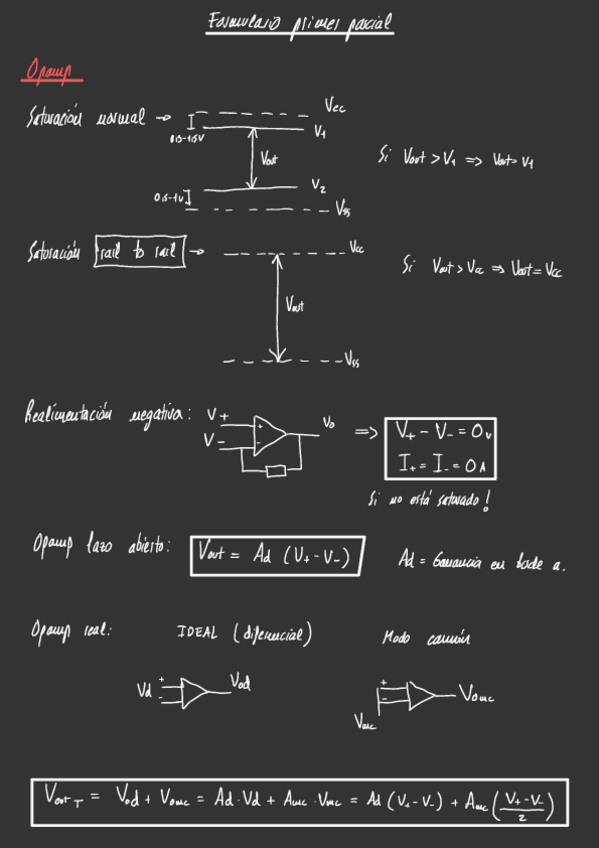 Formulario primer parcial
Opamp
Saturación normal → Vcc
0.5-1.5V V1
Vout Si Vout > V1 ⇒ Vout = V1
0.5-1V V2
Vss
Saturación rail to rail → Vcc
Si Vout > Vcc ⇒ Vout = Vcc
Vout
Vss
Realimentación negativa: V+ + Vo ⇒ V+ - V- = 0V
V- - I+ = I- = 0A
Si no está saturado!
Opamp lazo abierto: Vout = Ad (V+ - V-) Ad = Ganancia en bucle a.
Opamp real: IDEAL (diferencial) Modo común
Vd + - Vod + - Vomc
Vmc
Vout T = Vod + Vomc = Ad · Vd + Amc · Vmc = Ad (V+ - V-) + Amc ((V+ - V-)/2)